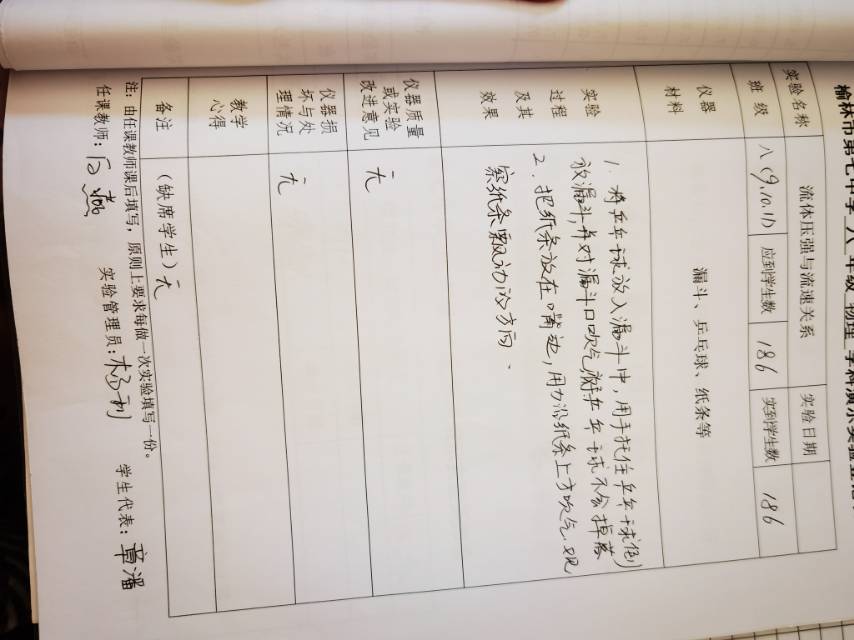 榆林市第七中学 八 年级 物理 学科演示实验登记
实验名称 流体压强与流速关系 实验日期
班 级 八(9.10.11) 应到学生数 186 实到学生数 186
仪器材料 漏斗、乒乓球、纸条等
实验过程及其效果
1. 将乒乓球放入漏斗中,用手托住乒乓球倒
放漏斗,并对漏斗口吹气,乒乓球不会掉落
2. 把纸条放在嘴边,用力沿纸条上方吹气,观
察纸条飘动的方向.
仪器质量或实验改进意见 无
仪器损坏与处理情况 无
教学心得
备注 (缺席学生)无
注:由任课教师课后填写,原则上要求每做一次实验填写一份。
任课教师: 实验管理员: 学生代表:章潘